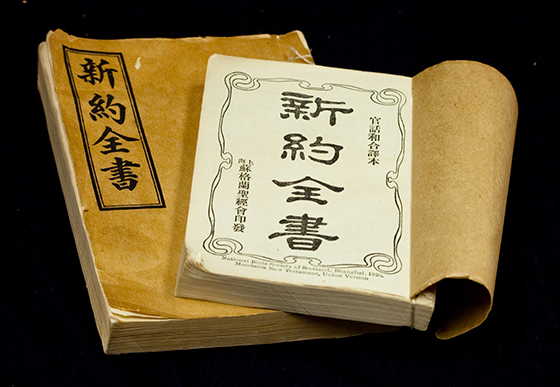 新約全書
官話和合譯本
新約全書
上海
蘇格蘭聖經會印發
National Bible Society of Scotland, Shanghai, 1925.
Mandarin New Testament, Union Version